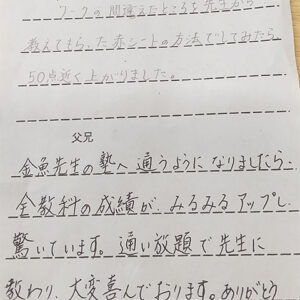 ワークの間違えたところを先生から
教えてもらった赤シートの方法でしてみたら
50点近く上がりました。
父兄
金魚先生の塾へ通うようになりましたら、
全教科の成績が、みるみるアップし、
驚いています。通い放題で先生に
教わり、大変喜んでおります。ありがとう